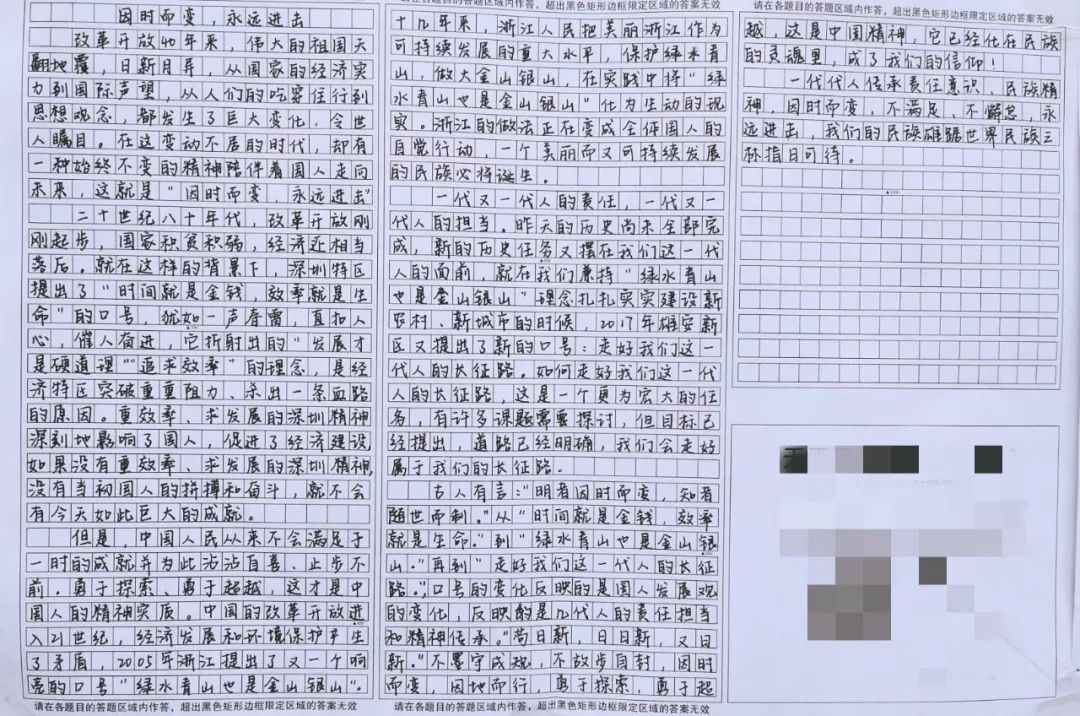 请在各题目的答题区域内作答，超出黑色矩形边框限定区域的答案无效
因时而变，永远进击
改革开放40年来，伟大的祖国天
翻地覆，日新月异，从国家的经济实
力到国际声望，从人们的吃穿住行到
思想观念，都发生了巨大变化，令世
人瞩目。在这变动不居的时代，却有
一种始终不变的精神陪伴着国人走向
未来，这就是“因时而变，永远进击”
二十世纪八十年代，改革开放刚
刚起步，国家积贫积弱，经济还相当
落后。就在这样的背景下，深圳特区
提出了“时间就是金钱，效率就是生
命”的口号，犹如一声春雷，直扣人
心，催人奋进，它折射出的“发展才
是硬道理”“追求效率”的理念，是经
济特区突破重重阻力、杀出一条血路
的原因。重效率、求发展的深圳精神
深刻地影响了国人，促进了经济建设，
如果没有重效率、求发展的深圳精神，
没有当初国人的拼搏和奋斗，就不会
有今天如此巨大的成就。
但是，中国人民从来不会满足于
一时的成就并为此沾沾自喜、止步不
前。勇于探索、勇于超越，这才是中
国人的精神实质。中国的改革开放进
入21世纪，经济发展和环境保护产生
了矛盾，2005年浙江提出了又一个响
亮的口号“绿水青山也是金山银山”。
请在各题目的答题区域内作答，超出黑色矩形边框限定区域的答案无效
请在各题目的答题区域内作答，超出黑色矩形边框限定区域的答案无效
十几年来，浙江人民把美丽浙江作为
可持续发展的重大水平，保护绿水青
山，做大金山银山，在实践中将“绿
水青山也是金山银山”化为生动的现
实。浙江的做法正在变成全体国人的
自觉行动，一个美丽而又可持续发展
的民族必将诞生。
一代又一代人的责任，一代又一
代人的担当。昨天的历史尚未全部完
成，新的历史任务又摆在我们这一代
人的面前，就在我们秉持“绿水青山
也是金山银山”理念扎扎实实建设新
农村、新城市的时候，2017年雄安新
区又提出了新的口号：走好我们这一
代人的长征路。如何走好我们这一代
人的长征路，这是一个更为宏大的任
务，有许多课题需要探讨，但目标已
经提出，道路已经明确，我们会走好
属于我们的长征路。
古人有言：“明者因时而变，知者
随世而制。”从“时间就是金钱，效率
就是生命。”到“绿水青山也是金山银
山。”再到“走好我们这一代人的长征
路。”，口号的变化反映的是国人发展观
的变化，反映的是几代人的责任担当
和精神传承。“苟日新，日日新，又日
新。”不墨守成规，不故步自封，因时
而变，因地而行，勇于探索，勇于超
请在各题目的答题区域内作答，超出黑色矩形边框限定区域的答案无效
请在各题目的答题区域内作答，超出黑色矩形边框限定区域的答案无效
越，这是中国精神，它已经化在民族
的灵魂里，成了我们的信仰！
一代代人传承责任意识、民族精
神，因时而变，不满足、不懈怠，永
远进击，我们的民族雄踞世界民族之
林指日可待。